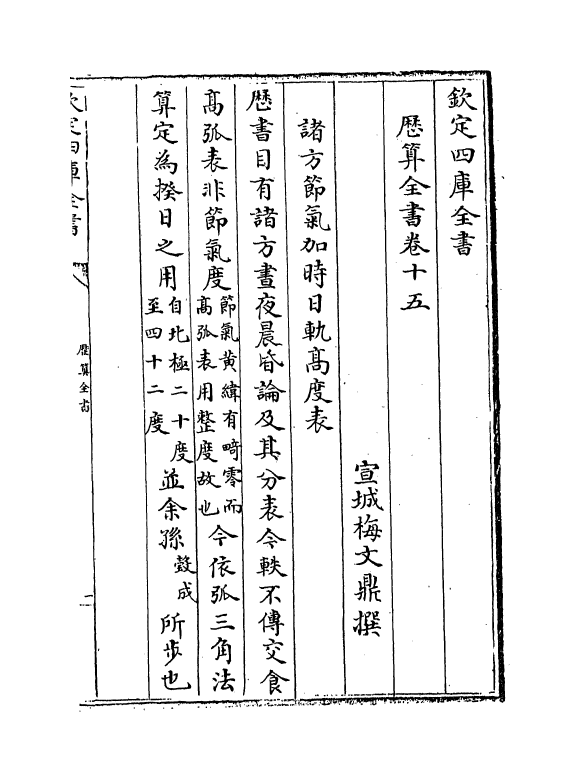 欽定四庫全書
歴算全書卷十五
宣城梅文鼎撰
諸方節氣加時日軌髙度表
歴書目有諸方晝夜晨昏論及其分表今軼不傳交食
髙弧表非節氣度節氣黄緯有畸零而髙弧表用整度故也今依弧三角法
算定為揆日之用自北極二十度至四十二度並余孫瑴成所步也
欽定四庫全書
歴算全書
一